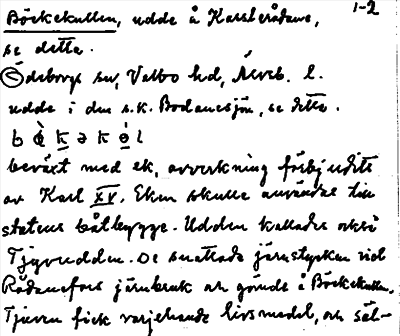 1-2
Böckekullen, udde å Karlberådane,
se detta.
Ödeborgs sn, Valbo hd, Älvsb. l.
udde i den s.k. Bodanesjön, se detta.
beväxt med ek, avverkning förbjudits
av Karl XV. Eken skulle användas till
statens båtbygge. Udden kallades också
Tjyvudden. De snattade järnstycken vid
Rådanefors järnbruk och gömde å Böckekullen.
Tjuven fick varjehanda livsmedel, och säl-